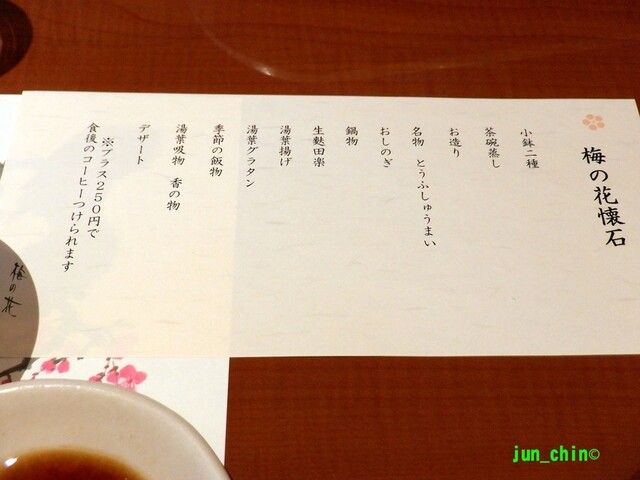 梅の花懐石
小鉢二種
茶碗蒸し
お造り
名物　とうふしゅうまい
おしのぎ
鍋物
生麩田楽
湯葉揚げ
湯葉グラタン
季節の飯物
湯葉吸物　香の物
デザート
※プラス２５０円で
食後のコーヒーつけられます
梅の花
jun_chin©